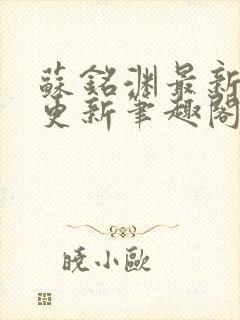 蘇銘淵最新
更新筆趣閣
曉小歐